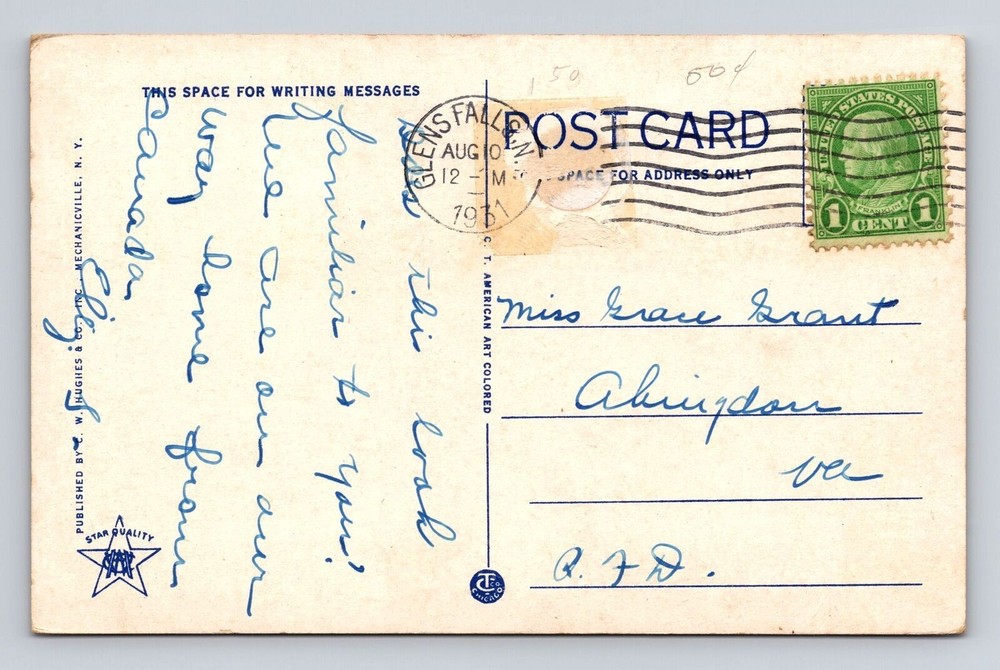 50
50¢
THIS SPACE FOR WRITING MESSAGES
POST CARD
SPACE FOR ADDRESS ONLY
GLENS FALLS, N.Y.
AUG 10
12 - M
1931
UNITED STATES POSTAGE
FRANKLIN
1 CENT 1
Does this look
familiar to you?
We are on our
way home from
Canada.
Eliz. L.
Miss Grace Grant
Abingdon
Va
R. F. D.
C. T. AMERICAN ART COLORED
PUBLISHED BY C. W. HUGHES & CO., INC., MECHANICVILLE, N. Y.
STAR QUALITY
CHICAGO